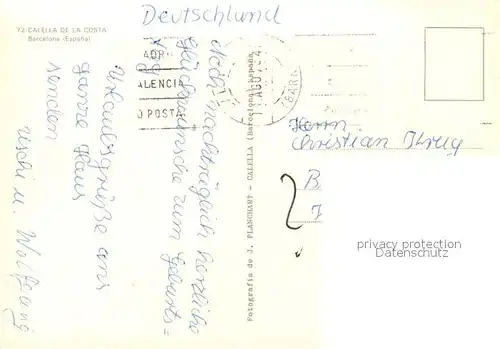 72-CALELLA DE LA COSTA
Barcelona (España)
Deutschland
Noch nachträglich herzliche
Glückwünsche zum Geburts=
tag
Urlaubsgrüße ans
ganze Haus
senden
Uschi u. Wolfgang
ADR
ALENCIA
O POSTA
AGO
BARC
Fotografía de J. PLANCHART - CALELLA (Barcelona) España
Herrn
Christian Krug
B
privacy protection
Datenschutz